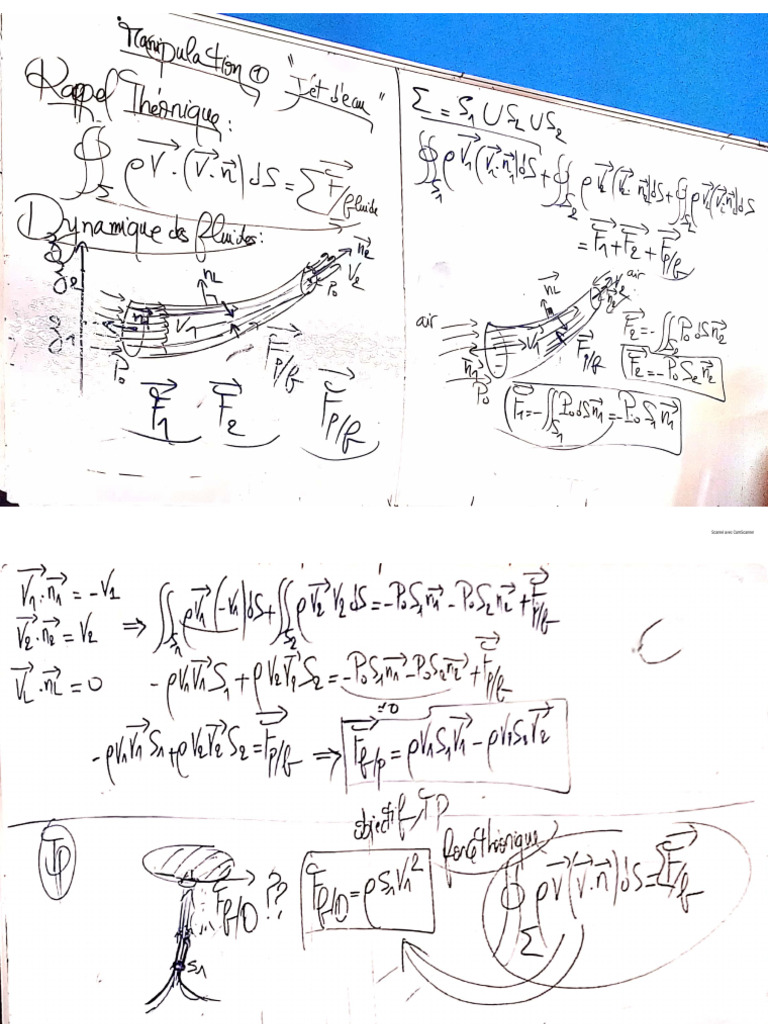 Manipulation ① "Jet d'eau"
Rappel Théorique:
∯_Σ ρV⃗·(V⃗·n⃗)dS = ΣF⃗/fluide
Dynamique des fluides:
n⃗2
V⃗2
nL⃗
P0
S2
S1
n⃗1
V⃗1
F⃗p/f
P0
F⃗1 F⃗2 F⃗p/f
Σ = S1 ∪ S2 ∪ S2
∯_S1 ρV⃗1(V⃗1·n⃗1)dS + ∯_S2 ρV⃗2(V⃗2·n⃗2)dS + ∯ ρV⃗L(V⃗L·n⃗)dS
= F⃗1 + F⃗2 + F⃗p/f
air
nL⃗
n⃗2
air
V⃗1
F⃗p/f
n⃗1
P0
F⃗2 = -∬_S2 P0 dS n⃗2
F⃗2 = -P0 S2 n⃗2
F⃗1 = -∬_S1 P0 dS n⃗1 = -P0 S1 n⃗1
Scanné avec CamScanner
V⃗1·n⃗1 = -V1
V⃗2·n⃗2 = V2
V⃗L·n⃗L = 0
⇒ ∬_S1 ρV⃗1(-V1)dS + ∬_S2 ρV⃗2 V2 dS = -P0 S1 n⃗1 - P0 S2 n⃗2 + F⃗p/f
-ρV1V⃗1 S1 + ρV2V⃗2 S2 = -P0 S1 n⃗1 - P0 S2 n⃗2 + F⃗p/f
≈0
-ρV1V⃗1 S1 + ρV2V⃗2 S2 = F⃗p/f ⇒ F⃗f/p = ρV1S1V⃗1 - ρV2S2V⃗2
objectif TP
TP
F⃗f/O ??
S1
Ff/O = ρS1V1²
force théorique
∯_Σ ρV⃗(V⃗·n⃗)dS = ΣF⃗/f